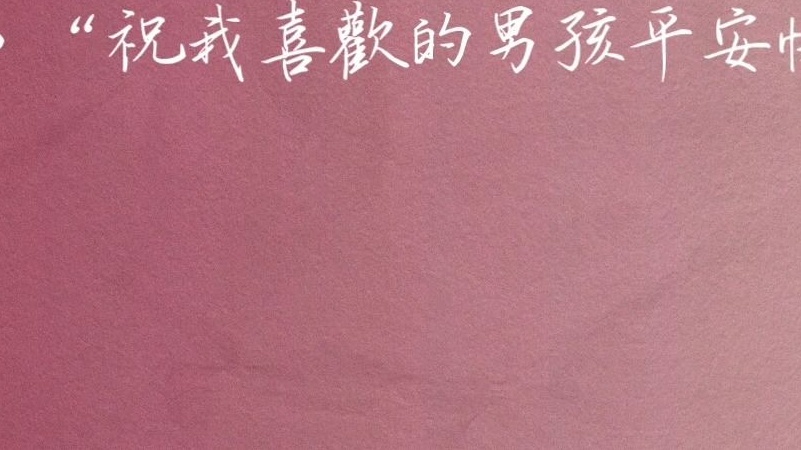 “祝我喜歡的男孩平安